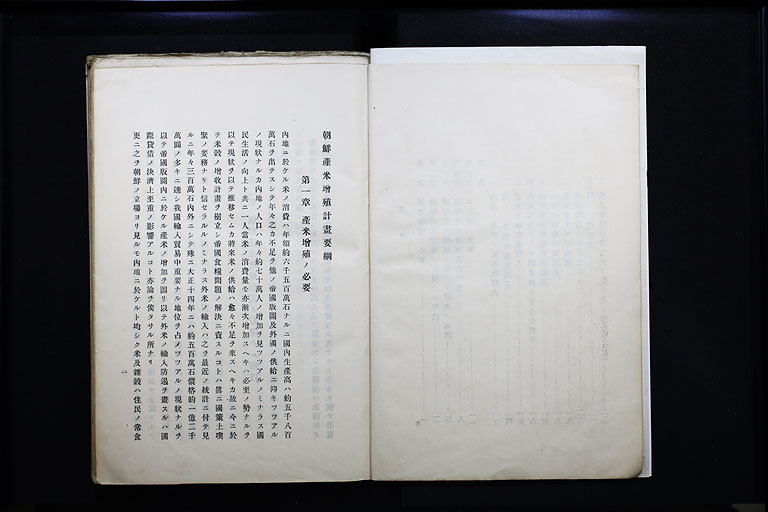 朝鮮產米增殖計畫要綱
第一章 產米增殖ノ必要
內地ニ於ケル米ノ消費ハ年額約六千五百萬石ナルニ國內生產高ハ約五千八百
萬石ヲ出テスシテ年々之カ不足ヲ他ノ帝國版圖及外國ノ供給ニ仰キツツアル
ノ現狀ナルカ內地ノ人口ハ年々約七十萬人ノ增加ヲ見ツツアルノミナラス國
民生活ノ向上ト共ニ一人當米ノ消費量モ亦漸次增加スヘキハ必至ノ勢ナルヲ
以テ現狀ヲ以テ推移セムカ將來米ノ供給ハ愈々不足ヲ來スヘキカ故ニ今ニ於
テ米穀ノ增收計畫ヲ樹立シ帝國食糧問題ノ解決ニ資スルコトハ眞ニ國策上喫
緊ノ要務ナリト信セラルルノミナラス外米ノ輸入ハ之ヲ最近ノ統計ニ付テ見
ルニ年々三百萬石內外ニシテ殊ニ大正十四年ニハ約五百萬石價格約一億二千
萬圓ノ多キニ達シ我國輸入貿易中重要ナル地位ヲ占メツツアルノ現狀ナルヲ
以テ帝國版圖內ニ於ケル產米ノ增加ヲ圖リ以テ外米ノ輸入防遏ヲ畫スルハ國
際貸借ノ決濟上至重ノ影響アルコト亦論ヲ俟タサル所ナリ
更ニ之ヲ朝鮮ノ立場ヨリ見ルモ內地ニ於ケルト均シク米及雜穀ハ住民ノ常食
一